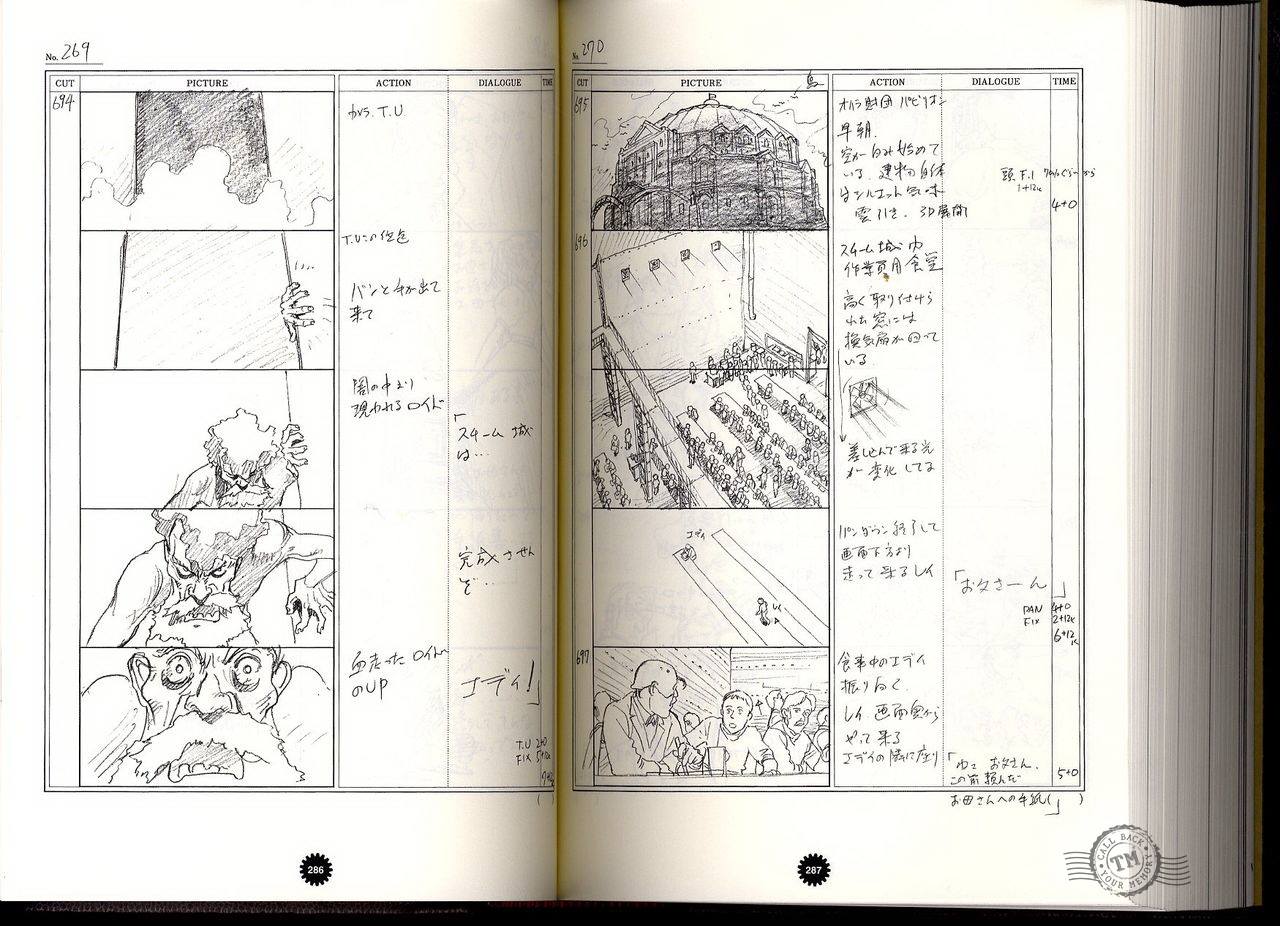 No. 269
CUT PICTURE ACTION DIALOGUE TIME
694
から T.U
T.Uこの位置
バンと手が出て
来て
闇の中より
現われるロイド
「
スチーム城
は…
完成させん
ぞ…
血走ったロイド
のUP
エディ!」
T.U 2+0
FIX 5+12k
286
No. 270
CUT PICTURE ACTION DIALOGUE TIME
695
オハラ財団 パビリオン
早朝.
空が白み始めて
いる. 建物自体
はシルエット気味
雲引き. 3D展開
頭 F.I
1+12k
4+0
696
スチーム城 内
作業員用食堂
高く取り付けら
れた窓には
換気扇が回って
いる
差し込んで来る光
が変化してる
エディ
レイ
パンダウン終了して
画面下方より
走って来るレイ
「お父さーん」
PAN 4+0
FIX 2+12k
6+12k
697
食事中のエディ
振り向く.
レイ. 画面奥から
やって来る
エディの隣に座り
「ねえ お父さん.
この前頼んだ
お母さんへの手紙」
5+0
( )
287
CALL BACK
TM
YOUR MEMORY